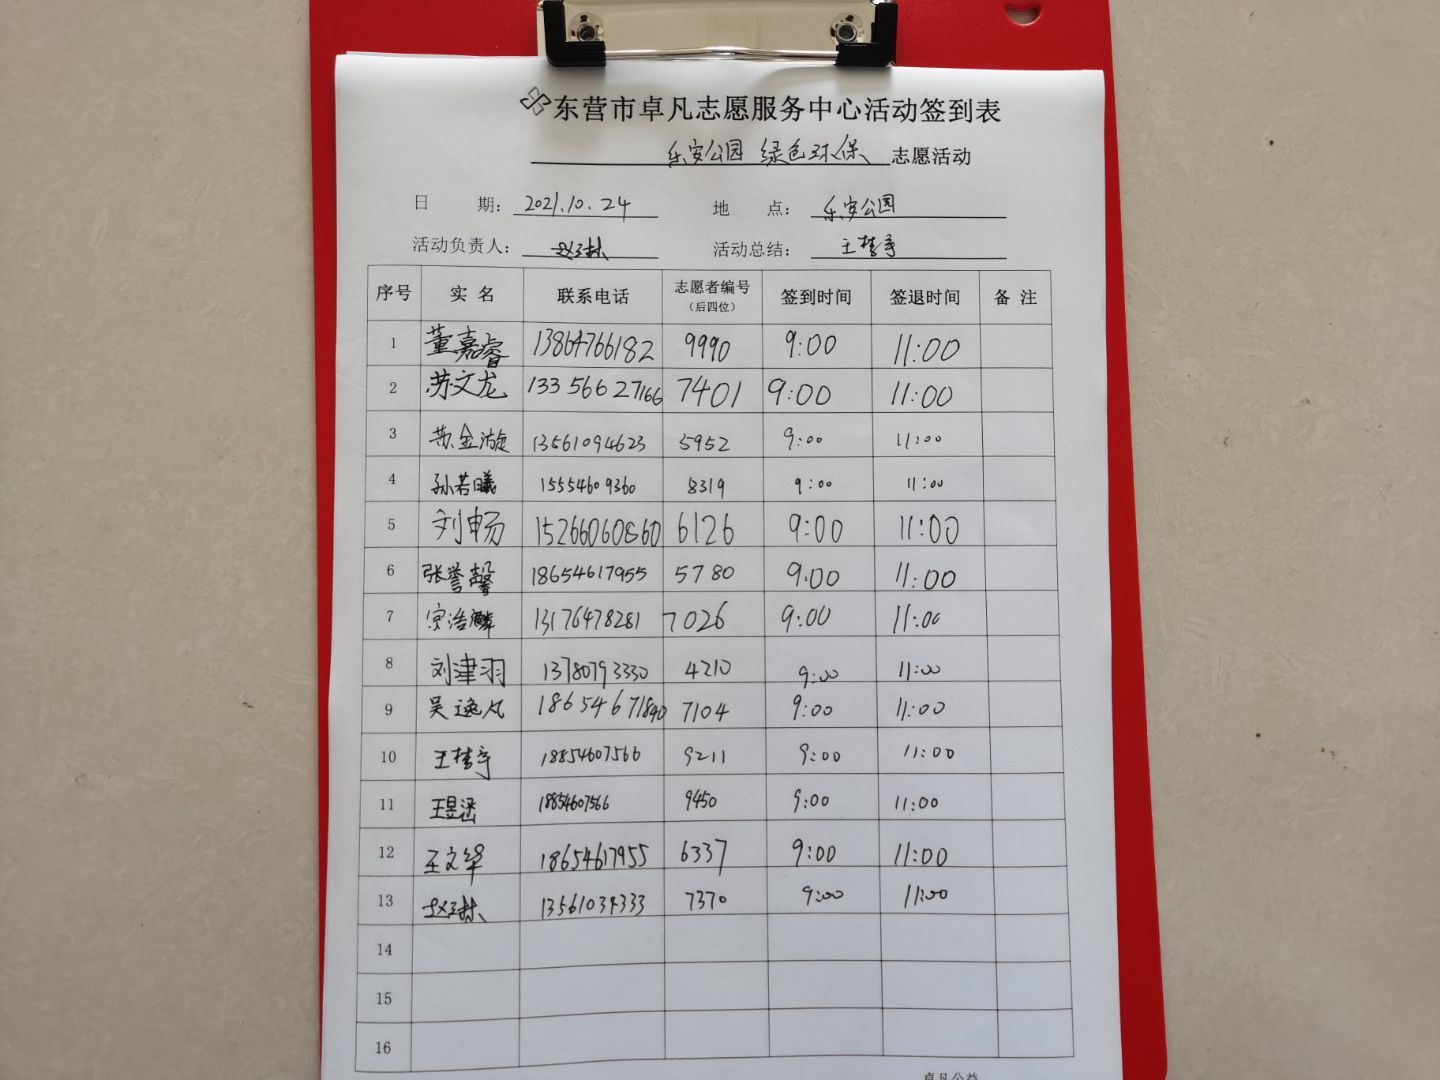 东营市卓凡志愿服务中心活动签到表
乐安公园 绿色环保 志愿活动
日 期: 2021.10.24 地 点: 乐安公园
活动负责人: 活动总结:
序号 实 名 联系电话 志愿者编号 (后四位) 签到时间 签退时间 备 注
1 董嘉睿 13864766182 9990 9:00 11:00
2 苏文龙 13356627166 7401 9:00 11:00
3 苏金漩 13561094623 5952 9:00 11:00
4 孙若曦 15554609360 8319 9:00 11:00
5 刘畅 15266060860 6126 9:00 11:00
6 张誉馨 18654617955 5780 9:00 11:00
7 宗浩麟 13176478281 7026 9:00 11:00
8 刘津羽 13780793330 4210 9:00 11:00
9 吴逸凡 18654671840 7104 9:00 11:00
10 18854607566 9211 9:00 11:00
11 王昱涵 18854607566 9450 9:00 11:00
12 王文华 18654617955 6337 9:00 11:00
13 13561034333 7370 9:00 11:00
14
15
16
卓凡公益